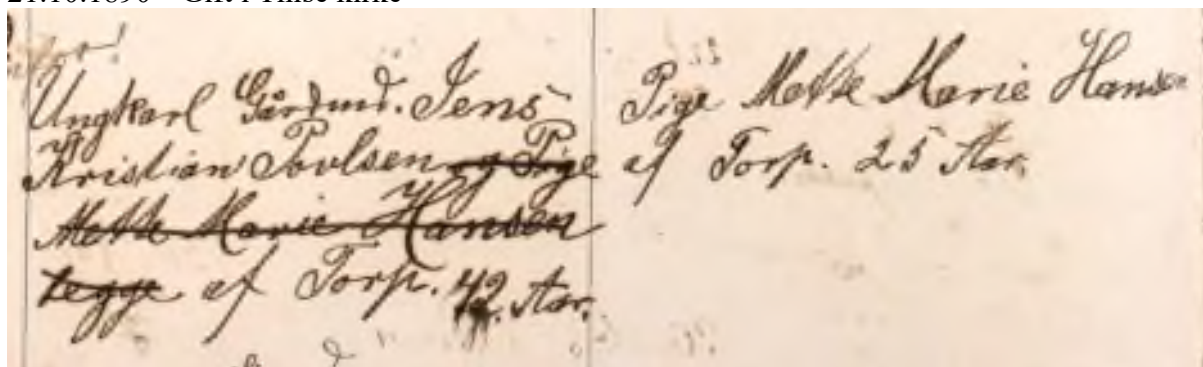 21.10.1890
Ungkarl Gårdmd. Jens
Kristian Povlsen og Pige
Mette Marie Hansen
begge af Torp. 42. Aar.
Pige Mette Marie Hansen
af Torp. 25 Aar.